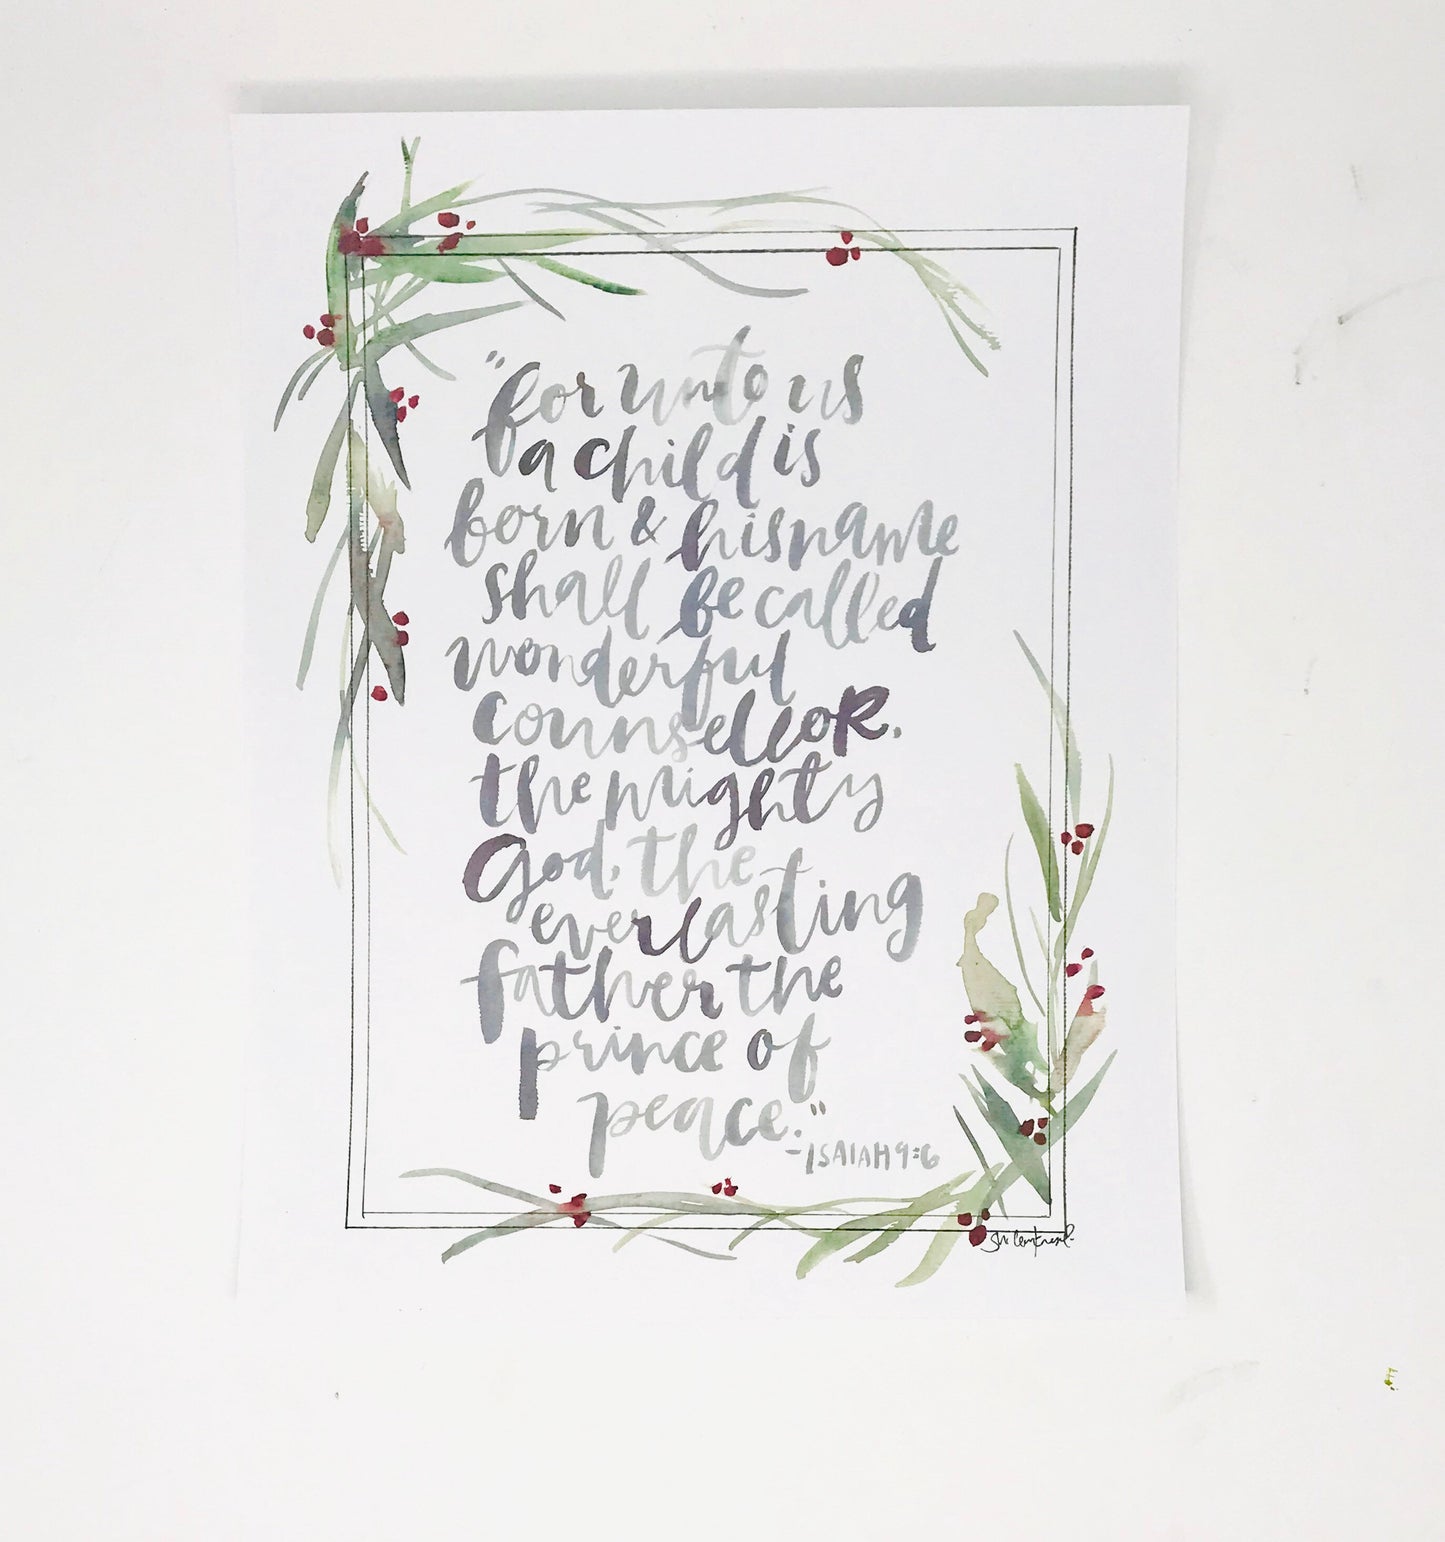 "for unto us
a child is
born & his name
shall be called
wonderful
counselloR,
the mighty
God, the
everlasting
father the
prince of
peace."
-ISAIAH 9:6